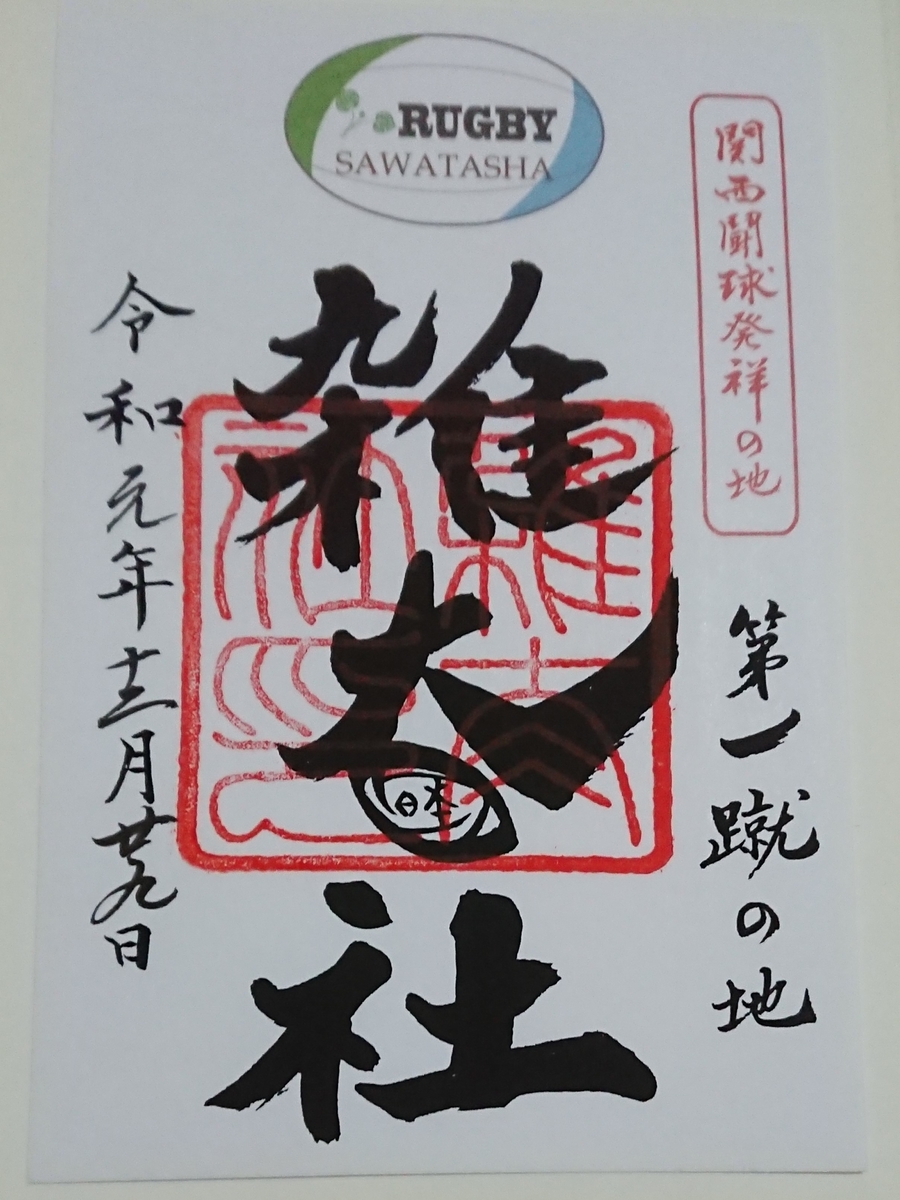 RUGBY
SAWATASHA
関西闘球発祥の地
第一蹴の地
雑太社
日本
令和元年十二月廿九日